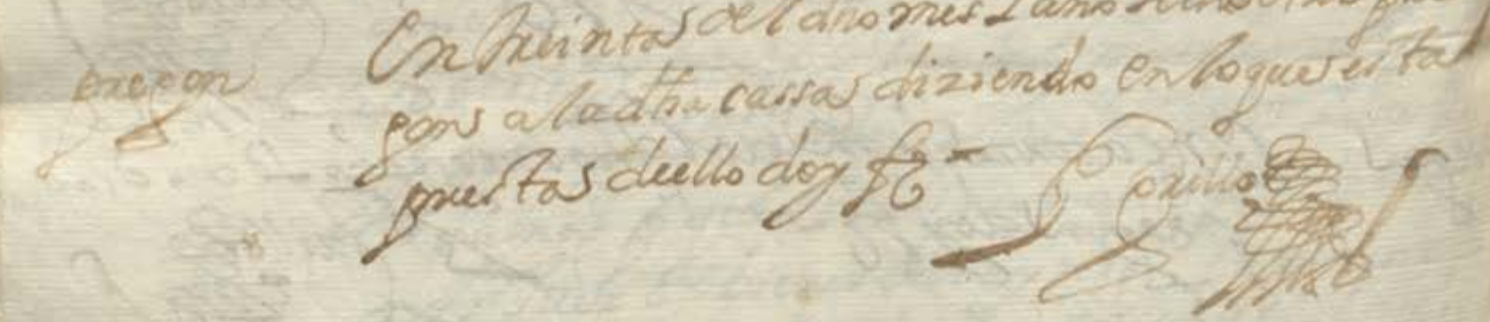 Pregon
En treinta del dho mes y año se dio otro pre
gon a la dha cassa diziendo en lo que esta
puesta de ello doy fe